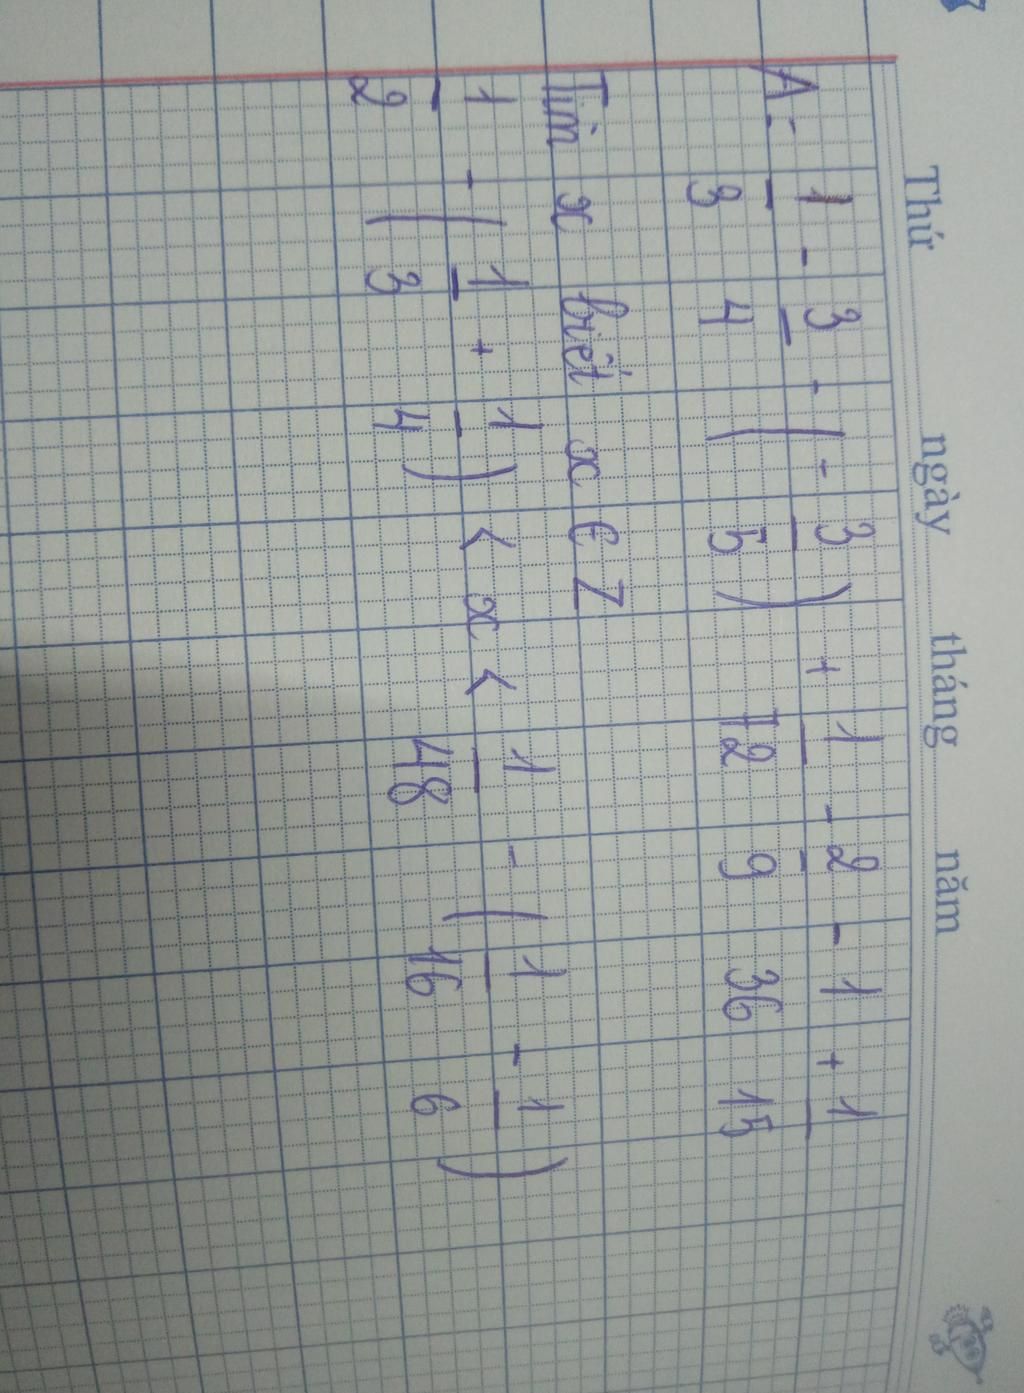 Thứ ngày tháng năm
A = 1/3 - 3/4 - (-3/5) + 1/72 - 2/9 - 1/36 + 1/15
Tìm x biết x ∈ Z
1/2 - (1/3 + 1/4) < x < 1/48 - (1/16 - 1/6)